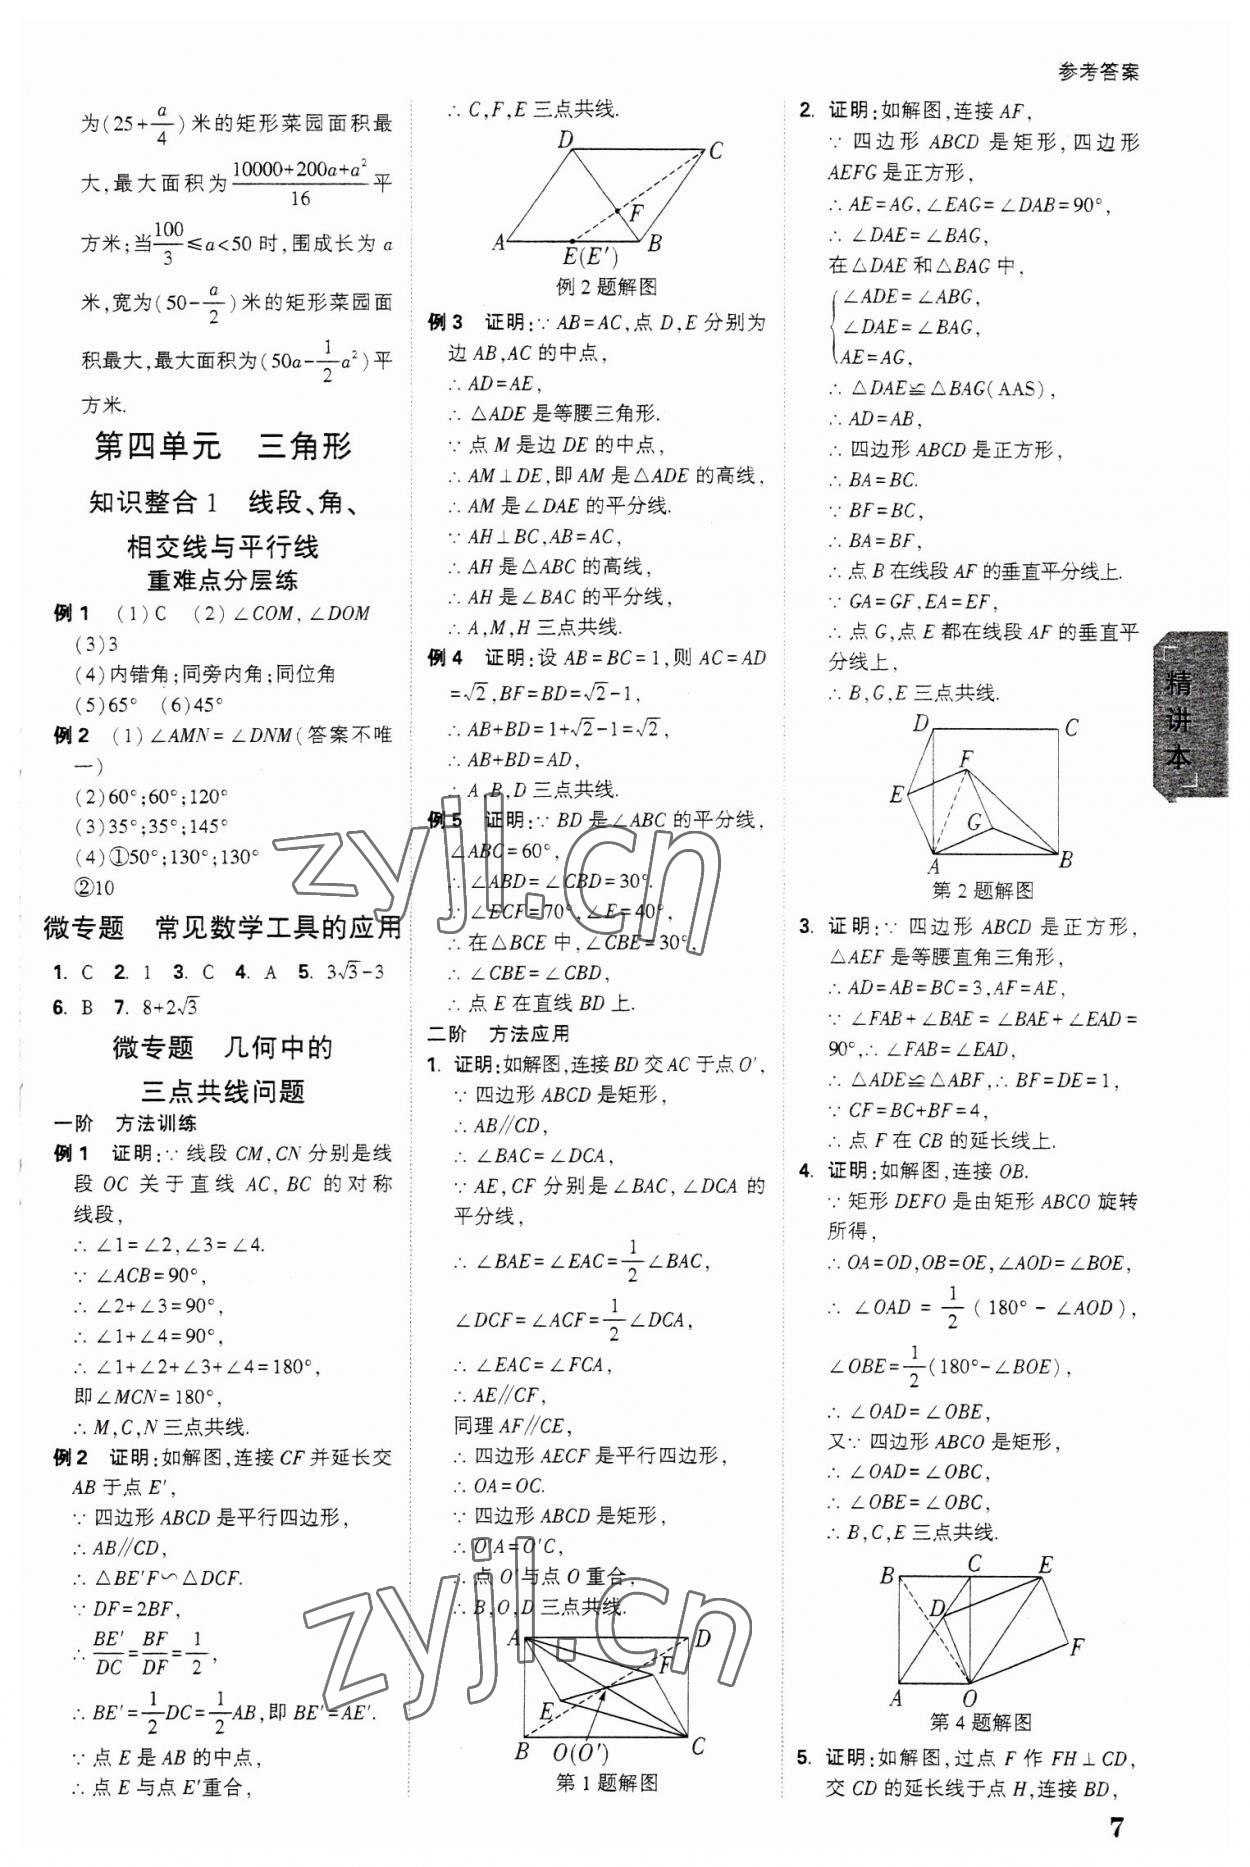 参考答案
为(25+a/4)米的矩形菜园面积最
大,最大面积为(10000+200a+a²)/16平
方米;当100/3≤a<50时,围成长为a
米,宽为(50-a/2)米的矩形菜园面
积最大,最大面积为(50a-1/2a²)平
方米.
第四单元 三角形
知识整合1 线段、角、
相交线与平行线
重难点分层练
例1 (1)C (2)∠COM,∠DOM
(3)3
(4)内错角;同旁内角;同位角
(5)65° (6)45°
例2 (1)∠AMN=∠DNM(答案不唯
一)
(2)60°;60°;120°
(3)35°;35°;145°
(4)①50°;130°;130°
②10
微专题 常见数学工具的应用
1. C 2. 1 3. C 4. A 5. 3√3-3
6. B 7. 8+2√3
微专题 几何中的
三点共线问题
一阶 方法训练
例1 证明:∵线段CM,CN分别是线
段OC关于直线AC,BC的对称
线段,
∴∠1=∠2,∠3=∠4.
∵∠ACB=90°,
∴∠2+∠3=90°,
∴∠1+∠4=90°,
∴∠1+∠2+∠3+∠4=180°,
即∠MCN=180°,
∴M,C,N三点共线.
例2 证明:如解图,连接CF并延长交
AB于点E′,
∵四边形ABCD是平行四边形,
∴AB∥CD,
∴△BE′F∽△DCF.
∵DF=2BF,
∴BE′/DC=BF/DF=1/2,
∴BE′=1/2DC=1/2AB,即BE′=AE′.
∵点E是AB的中点,
∴点E与点E′重合,
∴C,F,E三点共线.
D
C
F
A
E(E′)
B
例2题解图
例3 证明:∵AB=AC,点D,E分别为
边AB,AC的中点,
∴AD=AE,
∴△ADE是等腰三角形.
∵点M是边DE的中点,
∴AM⊥DE,即AM是△ADE的高线,
∴AM是∠DAE的平分线.
∵AH⊥BC,AB=AC,
∴AH是△ABC的高线,
∴AH是∠BAC的平分线,
∴A,M,H三点共线.
例4 证明:设AB=BC=1,则AC=AD
=√2,BF=BD=√2-1,
∴AB+BD=1+√2-1=√2,
∴AB+BD=AD,
∴A,B,D三点共线.
例5 证明:∵BD是∠ABC的平分线,
∠ABC=60°,
∴∠ABD=∠CBD=30°.
∵∠ECF=70°,∠E=40°,
∴在△BCE中,∠CBE=30°,
∴∠CBE=∠CBD,
∴点E在直线BD上.
二阶 方法应用
1. 证明:如解图,连接BD交AC于点O′,
∵四边形ABCD是矩形,
∴AB∥CD,
∴∠BAC=∠DCA,
∵AE,CF分别是∠BAC,∠DCA的
平分线,
∴∠BAE=∠EAC=1/2∠BAC,
∠DCF=∠ACF=1/2∠DCA,
∴∠EAC=∠FCA,
∴AE∥CF,
同理AF∥CE,
∴四边形AECF是平行四边形,
∴OA=OC.
∵四边形ABCD是矩形,
∴O′A=O′C,
∴点O′与点O重合,
∴B,O,D三点共线.
A
D
F
E
B
O(O′)
C
第1题解图
2. 证明:如解图,连接AF,
∵四边形ABCD是矩形,四边形
AEFG是正方形,
∴AE=AG,∠EAG=∠DAB=90°,
∴∠DAE=∠BAG,
在△DAE和△BAG中,
∠ADE=∠ABG,
∠DAE=∠BAG,
AE=AG,
∴△DAE≌△BAG(AAS),
∴AD=AB,
∴四边形ABCD是正方形,
∴BA=BC.
∵BF=BC,
∴BA=BF,
∴点B在线段AF的垂直平分线上.
∵GA=GF,EA=EF,
∴点G,点E都在线段AF的垂直平
分线上,
∴B,G,E三点共线.
D
C
F
E
G
A
B
第2题解图
3. 证明:∵四边形ABCD是正方形,
△AEF是等腰直角三角形,
∴AD=AB=BC=3,AF=AE,
∵∠FAB+∠BAE=∠BAE+∠EAD=
90°,∴∠FAB=∠EAD,
∴△ADE≌△ABF,∴BF=DE=1,
∵CF=BC+BF=4,
∴点F在CB的延长线上.
4. 证明:如解图,连接OB.
∵矩形DEFO是由矩形ABCO旋转
所得,
∴OA=OD,OB=OE,∠AOD=∠BOE,
∴∠OAD=1/2(180°-∠AOD),
∠OBE=1/2(180°-∠BOE),
∴∠OAD=∠OBE,
又∵四边形ABCO是矩形,
∴∠OAD=∠OBC,
∴∠OBE=∠OBC,
∴B,C,E三点共线.
B
C
E
D
F
A
O
第4题解图
5. 证明:如解图,过点F作FH⊥CD,
交CD的延长线于点H,连接BD,
精讲本
7
zyjl.cn
zyjl.cn